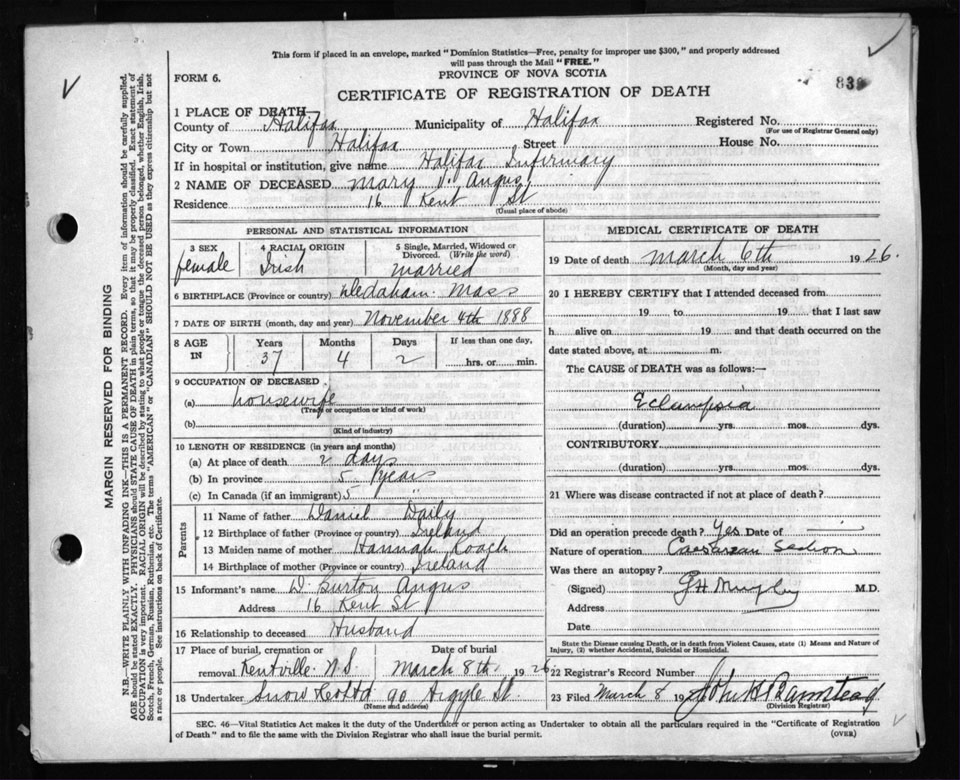 This form if placed in an envelope, marked "Dominion Statistics—Free, penalty for improper use $300," and properly addressed
will pass through the Mail "FREE."
PROVINCE OF NOVA SCOTIA
FORM 6.
CERTIFICATE OF REGISTRATION OF DEATH
1 PLACE OF DEATH
County of Halifax Municipality of Halifax Registered No.
(For use of Registrar General only)
City or Town Halifax Street House No.
If in hospital or institution, give name Halifax Infirmary
2 NAME OF DECEASED Mary J. Angus
Residence 16 Kent St
(Usual place of abode)
PERSONAL AND STATISTICAL INFORMATION
3 SEX 4 RACIAL ORIGIN 5 Single, Married, Widowed or
Divorced. (Write the word)
female Irish married
6 BIRTHPLACE (Province or country) Dedaham. Mass
7 DATE OF BIRTH (month, day and year) November 4th 1888
8 AGE IN Years Months Days If less than one day,
37 4 2 hrs. or min.
9 OCCUPATION OF DECEASED
(a) housewife
(Trade or occupation or kind of work)
(b)
(Kind of industry)
10 LENGTH OF RESIDENCE (in years and months)
(a) At place of death 2 days
(b) In province 5 years
(c) In Canada (if an immigrant) 5 "
Parents
11 Name of father Daniel Daily
12 Birthplace of father (Province or country) Ireland
13 Maiden name of mother Hannah Roach
14 Birthplace of mother (Province or country) Ireland
15 Informant's name D. Burton Angus
Address 16 Kent St
16 Relationship to deceased Husband
17 Place of burial, cremation or removal Date of burial
Kentville. N.S. March 8th 1926
18 Undertaker Snow & Co Ltd 90 Argyle St.
(Name and address)
MEDICAL CERTIFICATE OF DEATH
19 Date of death March 6th 1926.
(Month, day and year)
20 I HEREBY CERTIFY that I attended deceased from
19 to 19 that I last saw
h alive on 19 and that death occurred on the
date stated above, at m.
The CAUSE OF DEATH was as follows:—
Eclampsia
(duration) yrs. mos. dys.
CONTRIBUTORY
(duration) yrs. mos. dys.
21 Where was disease contracted if not at place of death?
Did an operation precede death? Yes Date of
Nature of operation Caesarean Section
Was there an autopsy?
(Signed) G H Murphy M.D.
Address
Date
State the Disease causing Death, or in death from Violent Causes, state (1) Means and Nature of
Injury, (2) whether Accidental, Suicidal or Homicidal.
22 Registrar's Record Number
23 Filed March 8 19
(Division Registrar)
SEC. 46—Vital Statistics Act makes it the duty of the Undertaker or person acting as Undertaker to obtain all the particulars required in the "Certificate of Registration
of Death" and to file the same with the Division Registrar who shall issue the burial permit.
(OVER)
MARGIN RESERVED FOR BINDING
N.B.—WRITE PLAINLY WITH UNFADING INK—THIS IS A PERMANENT RECORD. Every item of information should be carefully supplied.
AGE should be stated EXACTLY. PHYSICIANS should STATE CAUSE OF DEATH in plain terms, so that it may be properly classified. Exact statement of
OCCUPATION is very important. RACIAL ORIGIN will be described by stating to what people or tongue the deceased person belonged, whether English, Irish,
Scotch, French, German, Russian, Ruthenian, etc. The terms "AMERICAN" or "CANADIAN" SHOULD NOT BE USED as they express citizenship but not
a race or people. See instructions on back of Certificate.